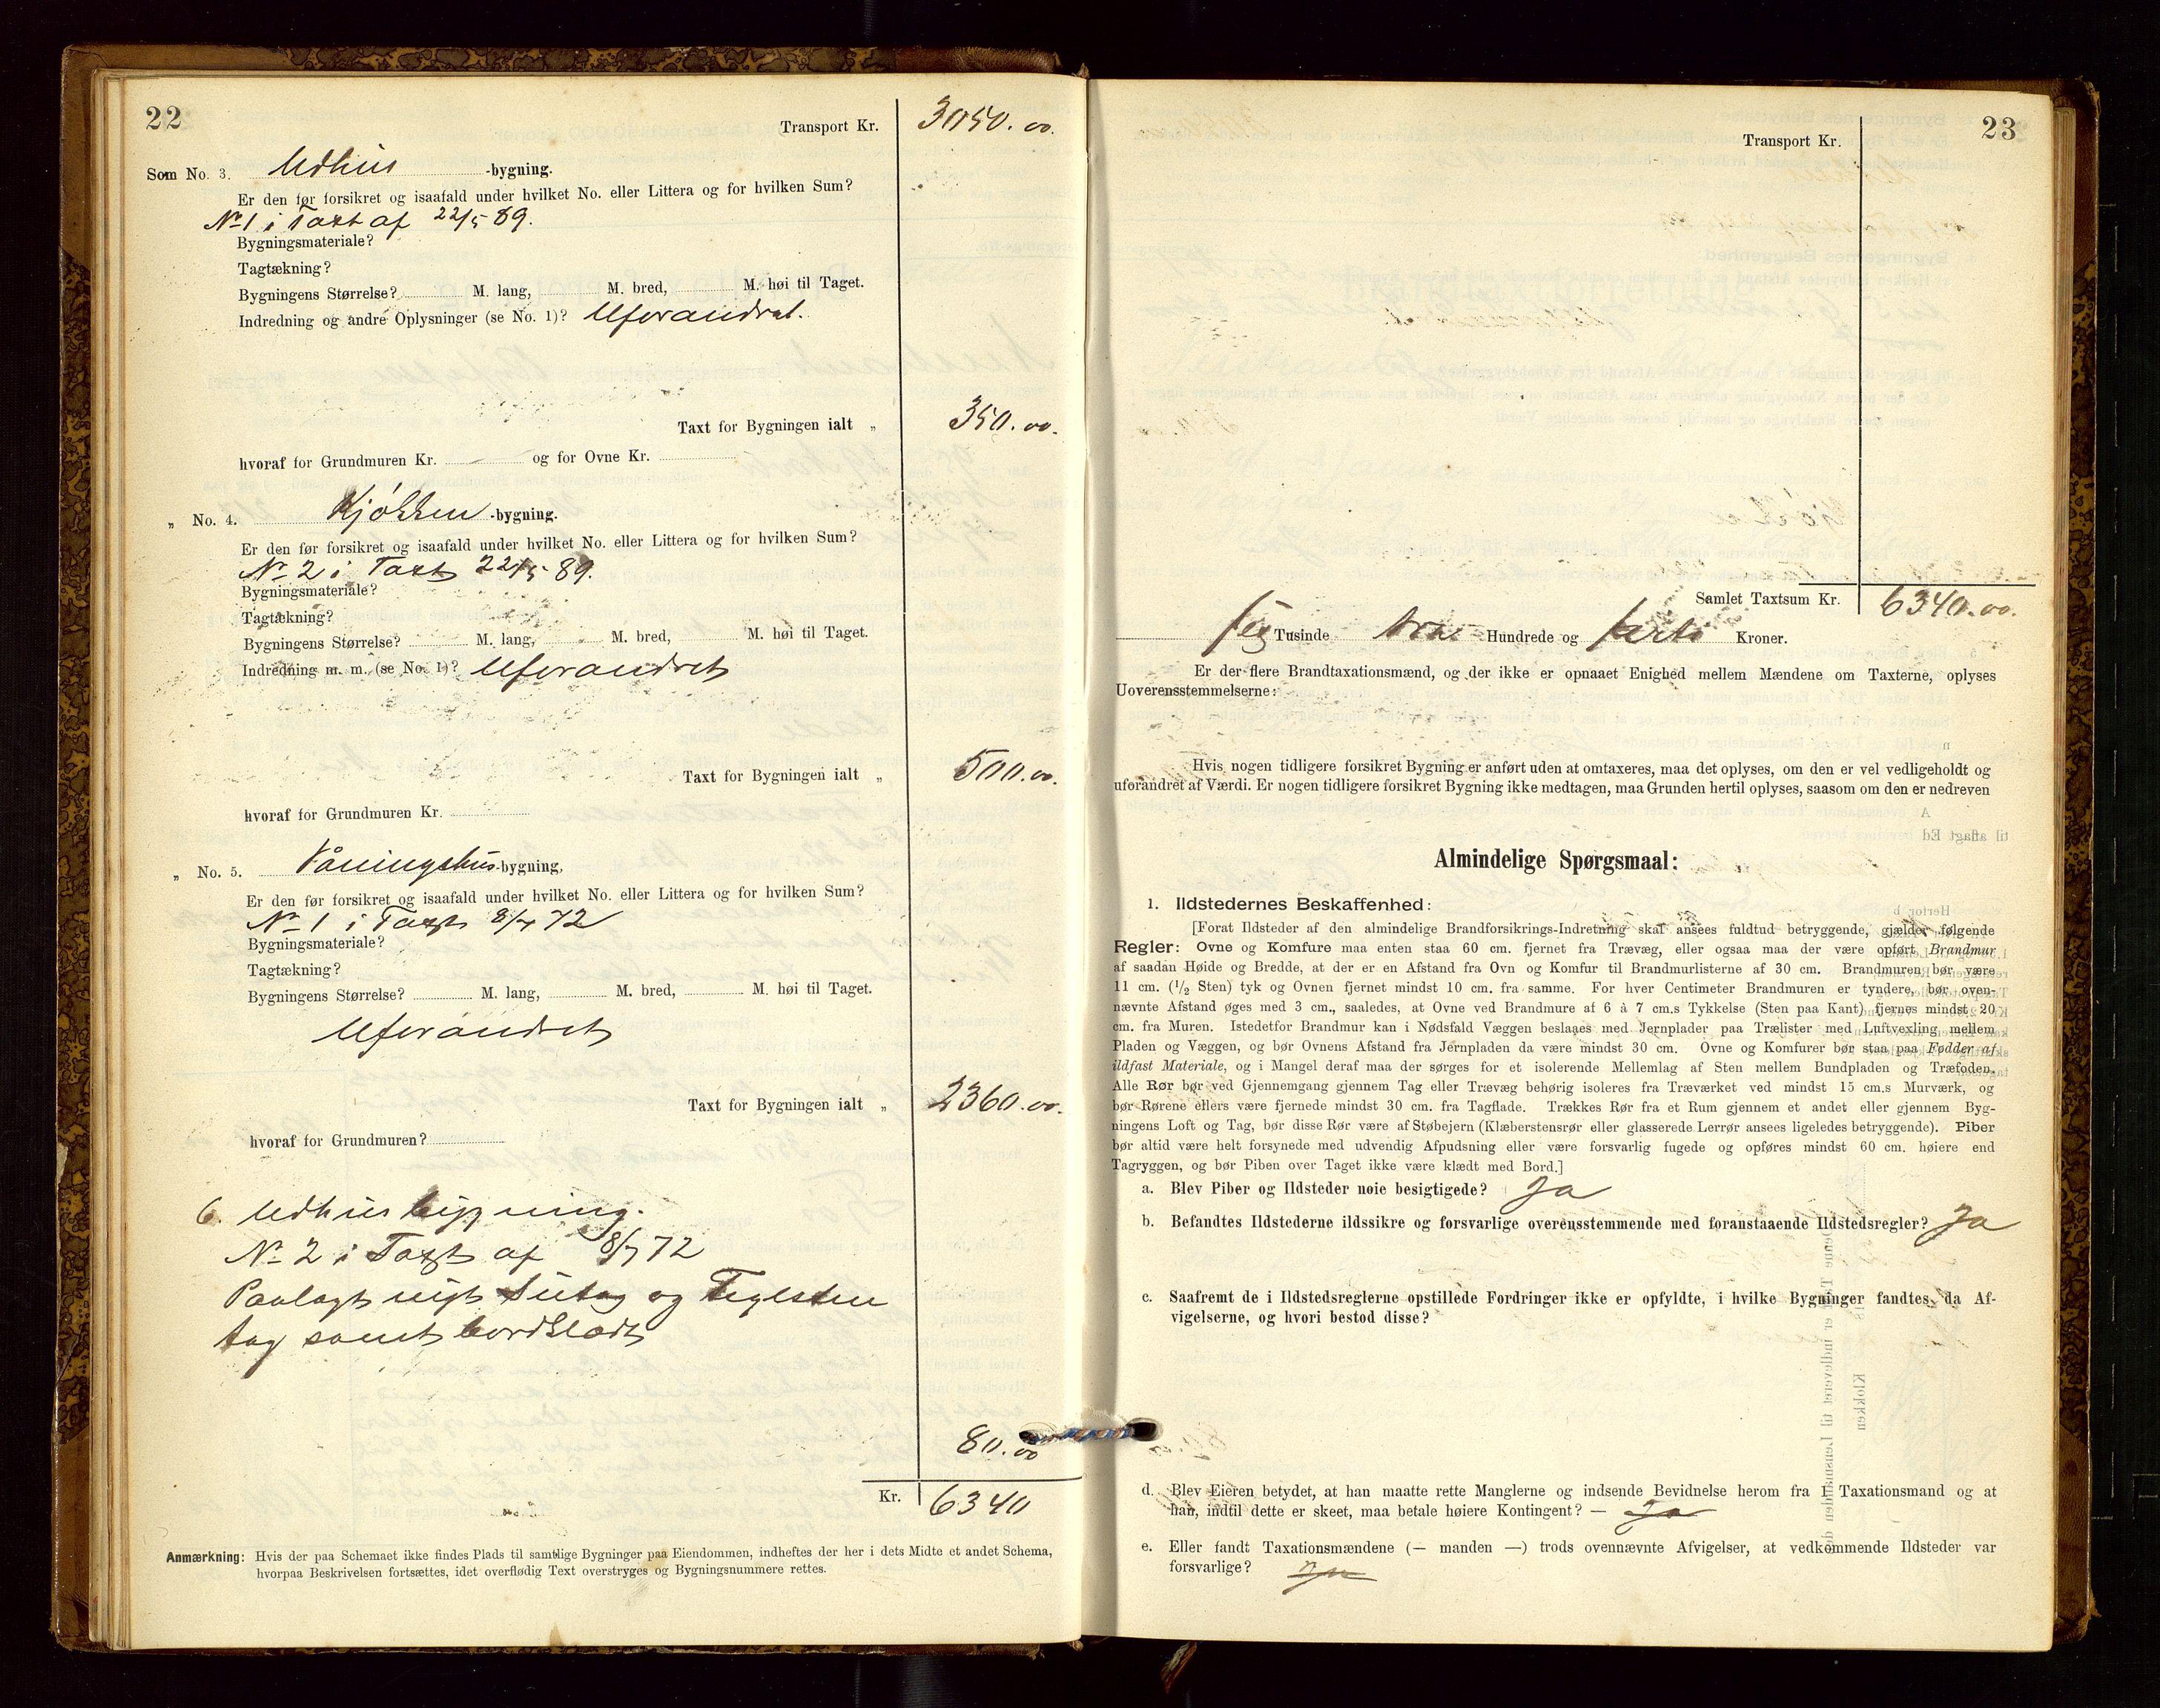 22
Transport Kr. 3050.00.
Som No. 3. Udhus -bygning.
Er den før forsikret og isaafald under hvilket No. eller Littera og for hvilken Sum?
No 1 i Taxt af 22/5 89.
Bygningsmateriale?
Tagtækning?
Bygningens Størrelse? M. lang, M. bred, M. høi til Taget.
Indredning og andre Oplysninger (se No. 1)? Uforandret.
Taxt for Bygningen ialt „ 350.00.
hvoraf for Grundmuren Kr. og for Ovne Kr.
„ No. 4. Kjøkken -bygning.
Er den før forsikret og isaafald under hvilket No. eller Littera og for hvilken Sum?
No 2 i Taxt 22/5 89.
Bygningsmateriale?
Tagtækning?
Bygningens Størrelse? M. lang, M. bred, M. høi til Taget.
Indredning m. m. (se No. 1)? Uforandret
Taxt for Bygningen ialt „ 500.00.
hvoraf for Grundmuren Kr.
„ No. 5. Våningshus-bygning,
Er den før forsikret og isaafald under hvilket No. eller Littera og for hvilken Sum?
No 1 i Taxt 8/7 72
Bygningsmateriale?
Tagtækning?
Bygningens Størrelse? M. lang, M. bred, M. høi til Taget.
Uforandret
Taxt for Bygningen ialt „ 2360.00.
hvoraf for Grundmuren?
6. Udhusbygning.
No 2 i Taxt af 8/7 72
Paalagt nyt og Teglsten
tag samt bordklædt
80.00
Kr. 6340
Anmærkning: Hvis der paa Schemaet ikke findes Plads til samtlige Bygninger paa Eiendommen, indheftes der her i dets Midte et andet Schema,
hvorpaa Beskrivelsen fortsættes, idet overflødig Text overstryges og Bygningsnummere rettes.
23
Transport Kr.
Samlet Taxtsum Kr. 6340.00.
Sex Tusinde tre Hundrede og førti Kroner.
Er der flere Brandtaxationsmænd, og der ikke er opnaaet Enighed mellem Mændene om Taxterne, oplyses
Uoverensstemmelserne:
Hvis nogen tidligere forsikret Bygning er anført uden at omtaxeres, maa det oplyses, om den er vel vedligeholdt og
uforandret af Værdi. Er nogen tidligere forsikret Bygning ikke medtagen, maa Grunden hertil oplyses, saasom om den er nedreven
Almindelige Spørgsmaal:
1. Ildstedernes Beskaffenhed:
[Forat Ildsteder af den almindelige Brandforsikrings-Indretning skal ansees fuldtud betryggende, gjælder følgende
Regler: Ovne og Komfure maa enten staa 60 cm. fjernet fra Trævæg, eller ogsaa maa der være opført Brandmur
af saadan Høide og Bredde, at der er en Afstand fra Ovn og Komfur til Brandmurlisterne af 30 cm. Brandmuren bør være
11 cm. (1/2 Sten) tyk og Ovnen fjernet mindst 10 cm. fra samme. For hver Centimeter Brandmuren er tyndere, bør oven-
nævnte Afstand øges med 3 cm., saaledes, at Ovne ved Brandmure af 6 à 7 cm.s Tykkelse (Sten paa Kant) fjernes mindst 20
cm. fra Muren. Istedetfor Brandmur kan i Nødsfald Væggen beslaaes med Jernplader paa Trælister med Luftvexling mellem
Pladen og Væggen, og bør Ovnens Afstand fra Jernpladen da være mindst 30 cm. Ovne og Komfurer bør staa paa Fødder af
ildfast Materiale, og i Mangel deraf maa der sørges for et isolerende Mellemlag af Sten mellem Bundpladen og Træfoden.
Alle Rør bør ved Gjennemgang gjennem Tag eller Trævæg behørig isoleres fra Træværket ved mindst 15 cm.s Murværk, og
bør Rørene ellers være fjernede mindst 30 cm. fra Tagflade. Trækkes Rør fra et Rum gjennem et andet eller gjennem Byg-
ningens Loft og Tag, bør disse Rør være af Støbejern (Klæberstensrør eller glasserede Lerrør ansees ligeledes betryggende). Piber
bør altid være helt forsynede med udvendig Afpudsning eller være forsvarlig fugede og opføres mindst 60 cm. høiere end
Tagryggen, og bør Piben over Taget ikke være klædt med Bord.]
a. Blev Piber og Ildsteder nøie besigtigede? Ja
b. Befandtes Ildstederne ildssikre og forsvarlige overensstemmende med foranstaaende Ildstedsregler? Ja
c. Saafremt de i Ildstedsreglerne opstillede Fordringer ikke er opfyldte, i hvilke Bygninger fandtes da Af-
vigelserne, og hvori bestod disse?
d. Blev Eieren betydet, at han maatte rette Manglerne og indsende Bevidnelse herom fra 1 Taxationsmand og at
han, indtil dette er skeet, maa betale høiere Kontingent? — Ja
e. Eller fandt Taxationsmændene (— manden —) trods ovennævnte Afvigelser, at vedkommende Ildsteder var
forsvarlige? Ja